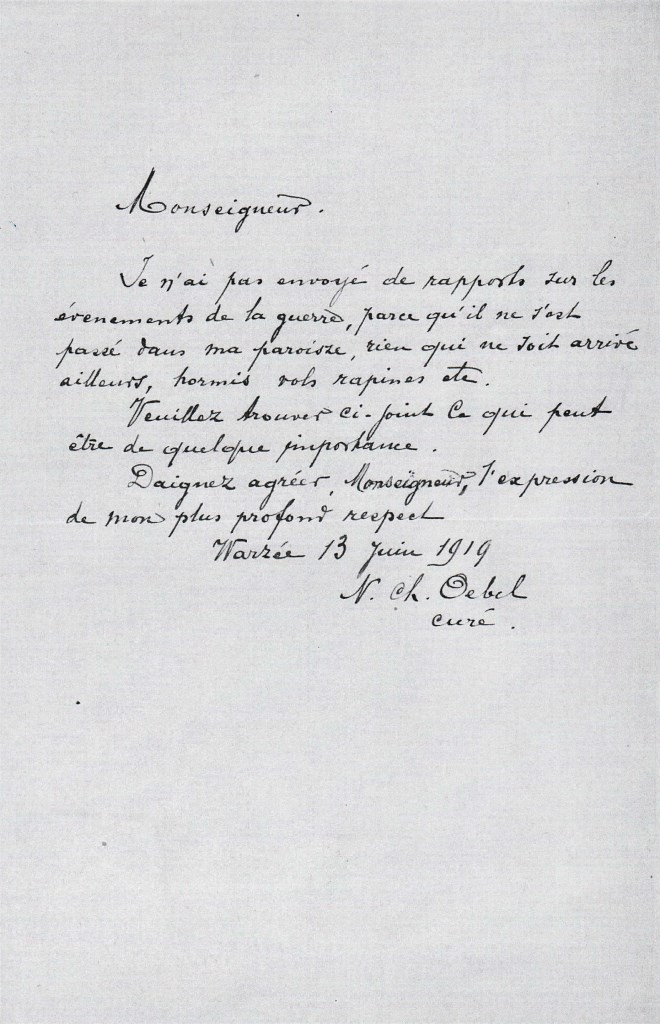 Monseigneur.
Je n'ai pas envoyé de rapports sur les
évenements de la guerre, parce qu'il ne s'est
passé dans ma paroisse, rien qui ne soit arrivé
ailleurs, hormis vols rapines etc.
Veuillez trouver ci-joint ce qui peut
être de quelque importance.
Daignez agréer, Monseigneur, l'expression
de mon plus profond respect
Warzée 13 Juin 1919
N. Ch. Oebel
curé.